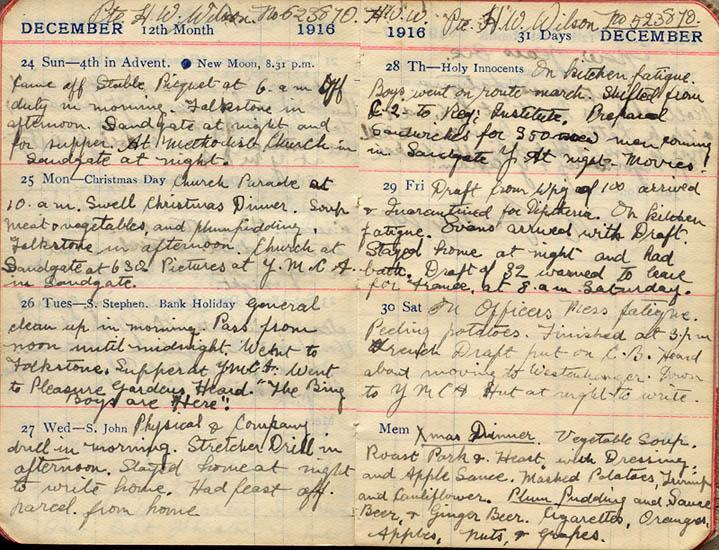 Pte. H. W. Wilson. No 523870.
DECEMBER 12th Month 1916
24 Sun—4th in Advent. New Moon, 8.31 p.m.
Came off Stable Picquet at 6. a.m. Off
duty in morning. Folkstone in
afternoon. Sandgate at night and
for supper. At Methodist Church in
Sandgate at night.
25 Mon—Christmas Day Church Parade at
10. a.m. Swell Christmas Dinner. Soup
meat & vegetables, and plum pudding.
Folkstone in afternoon. Church at
Sandgate at 630. Pictures at Y. M. C. A.
in Sandgate.
26 Tues—S. Stephen. Bank Holiday General
clean up in morning. Pass from
noon until midnight. Went to
Folkstone. Supper at Y.M.C.A. Went
to Pleasure Gardens Heard. "The Bing
Boys are Here"!
27 Wed—S. John Physical & Company
drill in morning. Stretcher Drill in
afternoon. Stayed home at night
to write home. Had feast off
parcel from home
H.W.W. Pte. H. W. Wilson No 523870.
1916 31 Days DECEMBER
28 Th—Holy Innocents On kitchen fatigue.
Boys went on route march. Shifted from
C-2- to Reg: Institute. Prepared
sandwiches for 350 men coming
in. Sandgate Y. At night. Movies!
29 Fri Draft from Wpig of 100 arrived
& Quarantined for Diptheria. On kitchen
fatigue. Evans arrived with Draft.
Stayed home at night and had
bath. Draft of 32 warned to leave
for France, at 8. a.m. Saturday.
30 Sat On Officers Mess fatigue.
Peeling potatoes. Finished at 3. p.m
French Draft put on C. B. Heard
about moving to Westenhanger. Down
to Y M C A Hut at night to write.
Mem Xmas Dinner. Vegetable Soup.
Roast Pork & Heart, with Dressing,
and Apple Sauce. Mashed Potatoes, Turnip
and Cauliflower. Plum Pudding and Sauce
Beer, & Ginger Beer. Cigarettes, Oranges,
Apples, Nuts, & Grapes.